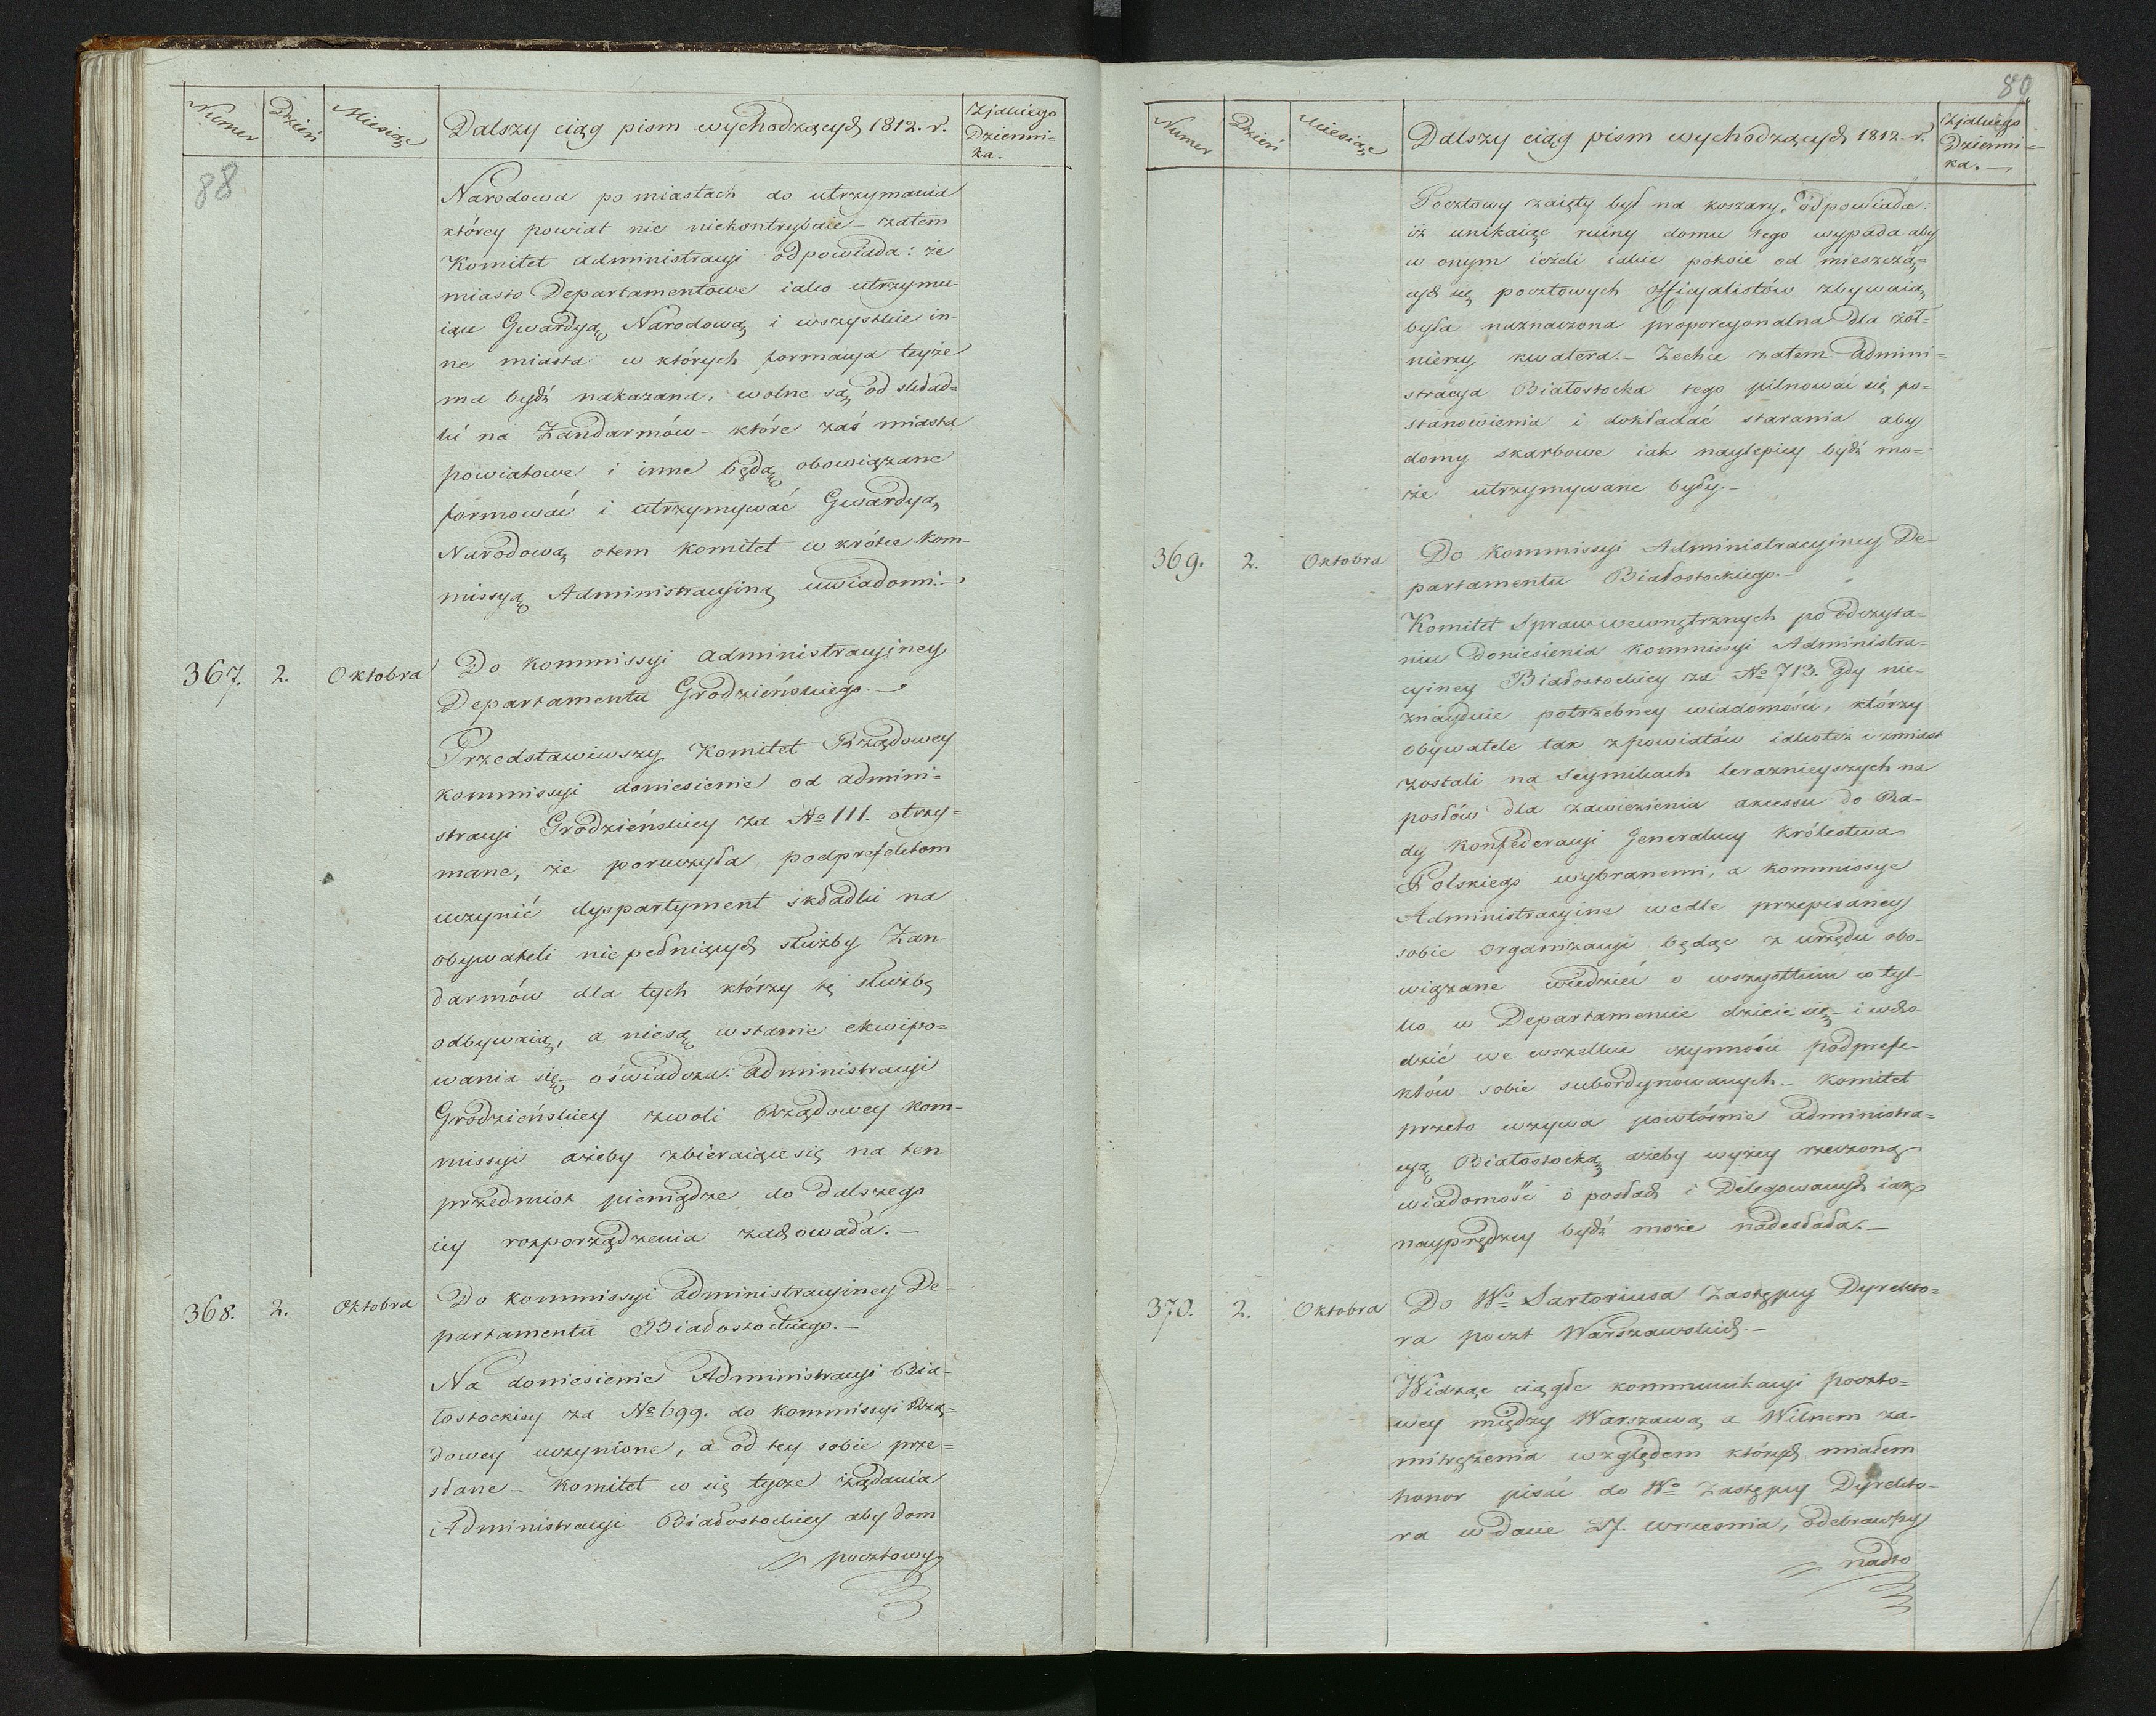 Numer
Dzień
Miesiąc
Dalszy ciąg pism wychodzących 1812. r.
Z jakiego
Dzienni-
ka.
88.
Narodowa po miastach do utrzymania
którey powiat nic niekontrybuie – zatem
Komitet administracyi odpowiada: że
miasto Departamentowe iako utrzymu-
iące Gwardyą Narodową i wszystkie in-
ne miasta w których formacya teyże
ma bydź nakazana, wolne są od skład-
ki na Żandarmów – które zaś miasta
powiatowe i inne będą obowiązane
formować i utrzymywać Gwardyą
Narodową otem Komitet wkrótce Kom-
missyą Administracyiną uwiadomi. –
367. 2. Oktobra
Do Kommissyi Administracyiney
Departamentu Grodzieńskiego. –
Przedstawiwszy Komitet Rządowey
Kommissyi doniesienie od admini-
stracyi Grodzieńskiey za No 111. otrzy-
mane, że poruczyła podprefektom
uczynić dyspartyment składki na
obywateli niepełniących służby Żan-
darmów dla tych którzy tę służbę
odbywaią, a niesą wstanie ekwipo-
wania się – oświadcza: Administracyi
Grodzieńskiey zwoli Rządowey Kom-
missyi ażeby zbieraiące się na ten
przedmiot pieniądze do dalszego
iey rozporządzenia zachowała. –
368. 2. Oktobra
Do Kommissyi Administracyiney De-
partamentu Białostockiego. –
Na doniesienie Administracyi Bia-
łostockiey za No 699. do Kommissyi Rzą-
dowey uczynione, a od tey sobie prze-
słane – Komitet co się tycze żądania
Administracyi Białostockiey aby dom
pocztowy
80
Numer
Dzień
Miesiąc
Dalszy ciąg pism wychodzących 1812. r.
Z jakiego
Dzienni-
ka. –
Pocztowy zaięty był na koszary, odpowiada:
iż unikaiąc ruiny domu tego wypada aby
w onym ieżeli iakie pokoie od mieszczą-
cych się pocztowych officyalistów zbywaią
była naznaczona proporcyonalna dla żoł-
nierzy kwatera. – Zechce zatem Admini-
stracya Białostocka tego pilnować się po-
stanowienia i dokładać starania aby
domy skarbowe iak naylepiey bydź mo-
że utrzymywane były. –
369. 2. Oktobra
Do Kommissyi Administracyiney De-
partamentu Białostockiego. –
Komitet Spraw wewnętrznych po odczyta-
niu Doniesienia Kommissyi Administra-
cyiney Białostockiey za No 713. Gdy nie-
znayduie potrzebney wiadomości, którzy
obywatele tak z powiatów iakoteż i zmiast
zostali na Seymikach teraznieyszych na
posłów dla zawiezienia akcessu do Ra-
dy Konfederacyi Jeneralney Królestwa
Polskiego wybranemi, a Kommissye
Administracyine wedle przepisaney
sobie organizacyi będąc z urzędu obo-
wiązane wiedzieć o wszystkim co tyl-
ko w Departamencie dzieie się – i wcho-
dzić we wszelkie czynności podprefe-
któw sobie subordynowanych – Komitet
przeto wzywa powtórnie Administra-
cyą Białostocką ażeby wyżey rzeczoną
wiadomość o posłach i Delegowanych iak
nayprędzey bydź może nadesłała. –
370. 2. Oktobra
Do Wo Sartoriusa Zastępcy Dyrekto-
ra poczt Warszawskich. –
Widząc ciągłe kommunikacyi poczto-
wey między Warszawą a Wilnem za-
mitrężenia względem których miałem
honor pisać do Wo Zastępcy Dyrekto-
ra w dacie 27. września, odebrawszy
nadto